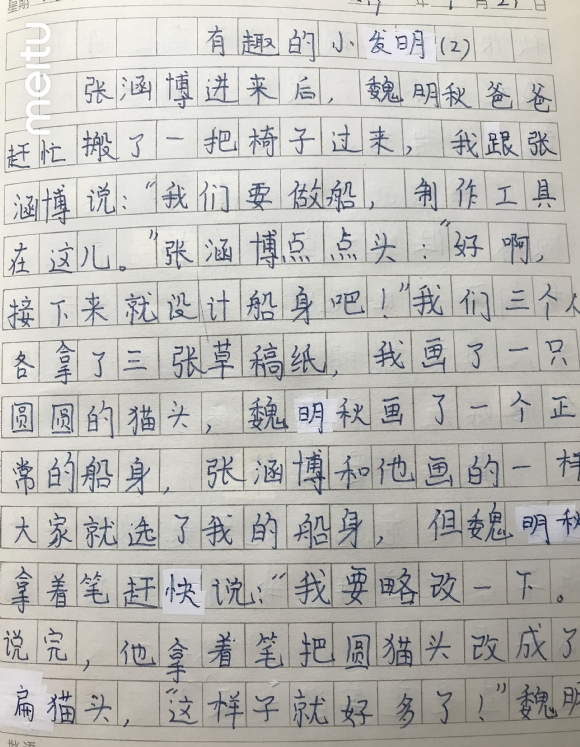 有趣的小发明(2)
张涵博进来后，魏明秋爸爸
赶忙搬了一把椅子过来，我跟张
涵博说：“我们要做船，制作工具
在这儿。”张涵博点点头：“好啊，
接下来就设计船身吧！”我们三个人
各拿了三张草稿纸，我画了一只
圆圆的猫头，魏明秋画了一个正
常的船身，张涵博和他画的一样
大家就选了我的船身，但魏明秋
拿着笔赶快说：“我要略改一下。
说完，他拿着笔把圆猫头改成了
扁猫头，“这样子就好多了！”魏明
meitu